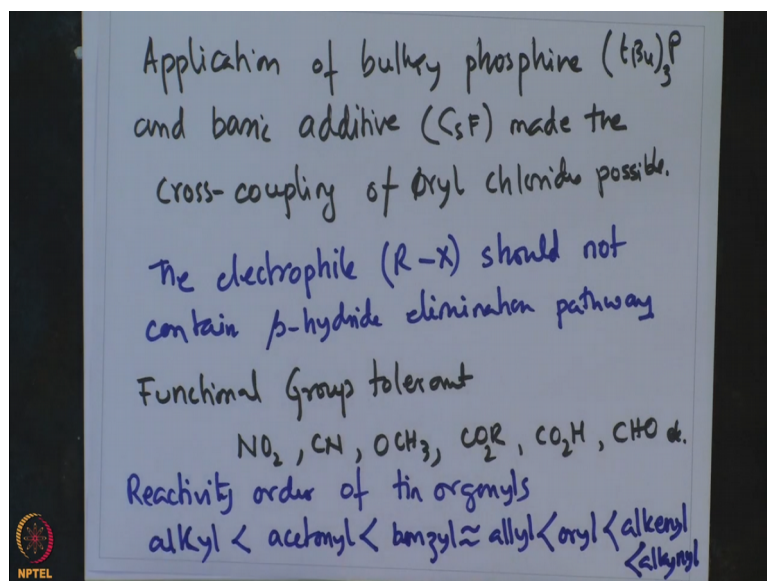 Application of bulkey phosphine (tBu)₃P
and basic additive (CsF) made the
cross-coupling of aryl chloride possible.
The electrophile (R-X) should not
contain β-hydride elimination pathway
Functional Group tolerant
NO₂, CN, OCH₃, CO₂R, CO₂H, CHO etc.
Reactivity order of tin organyls
alkyl < acetonyl < benzyl ≈ allyl < aryl < alkenyl
< alkynyl
NPTEL